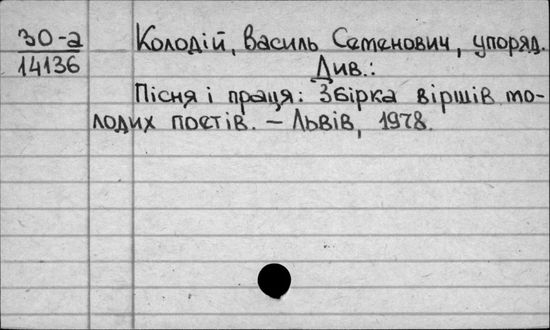 30-а Колодій, Василь Семенович, упоряд.
14136 Див.:
Пісня і праця: Збірка віршів мо-
лодих поетів. – Львів, 1978.